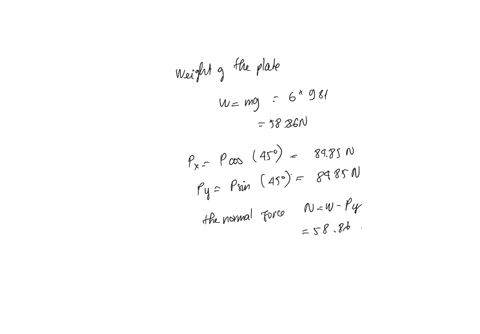 Weight of the plate
W = mg = 6 * 9.81
= 58.86N
Px = P cos (45°) = 84.85 N
Py = P sin (45°) = 84.85 N
the normal Force N = W - Py
= 58.86